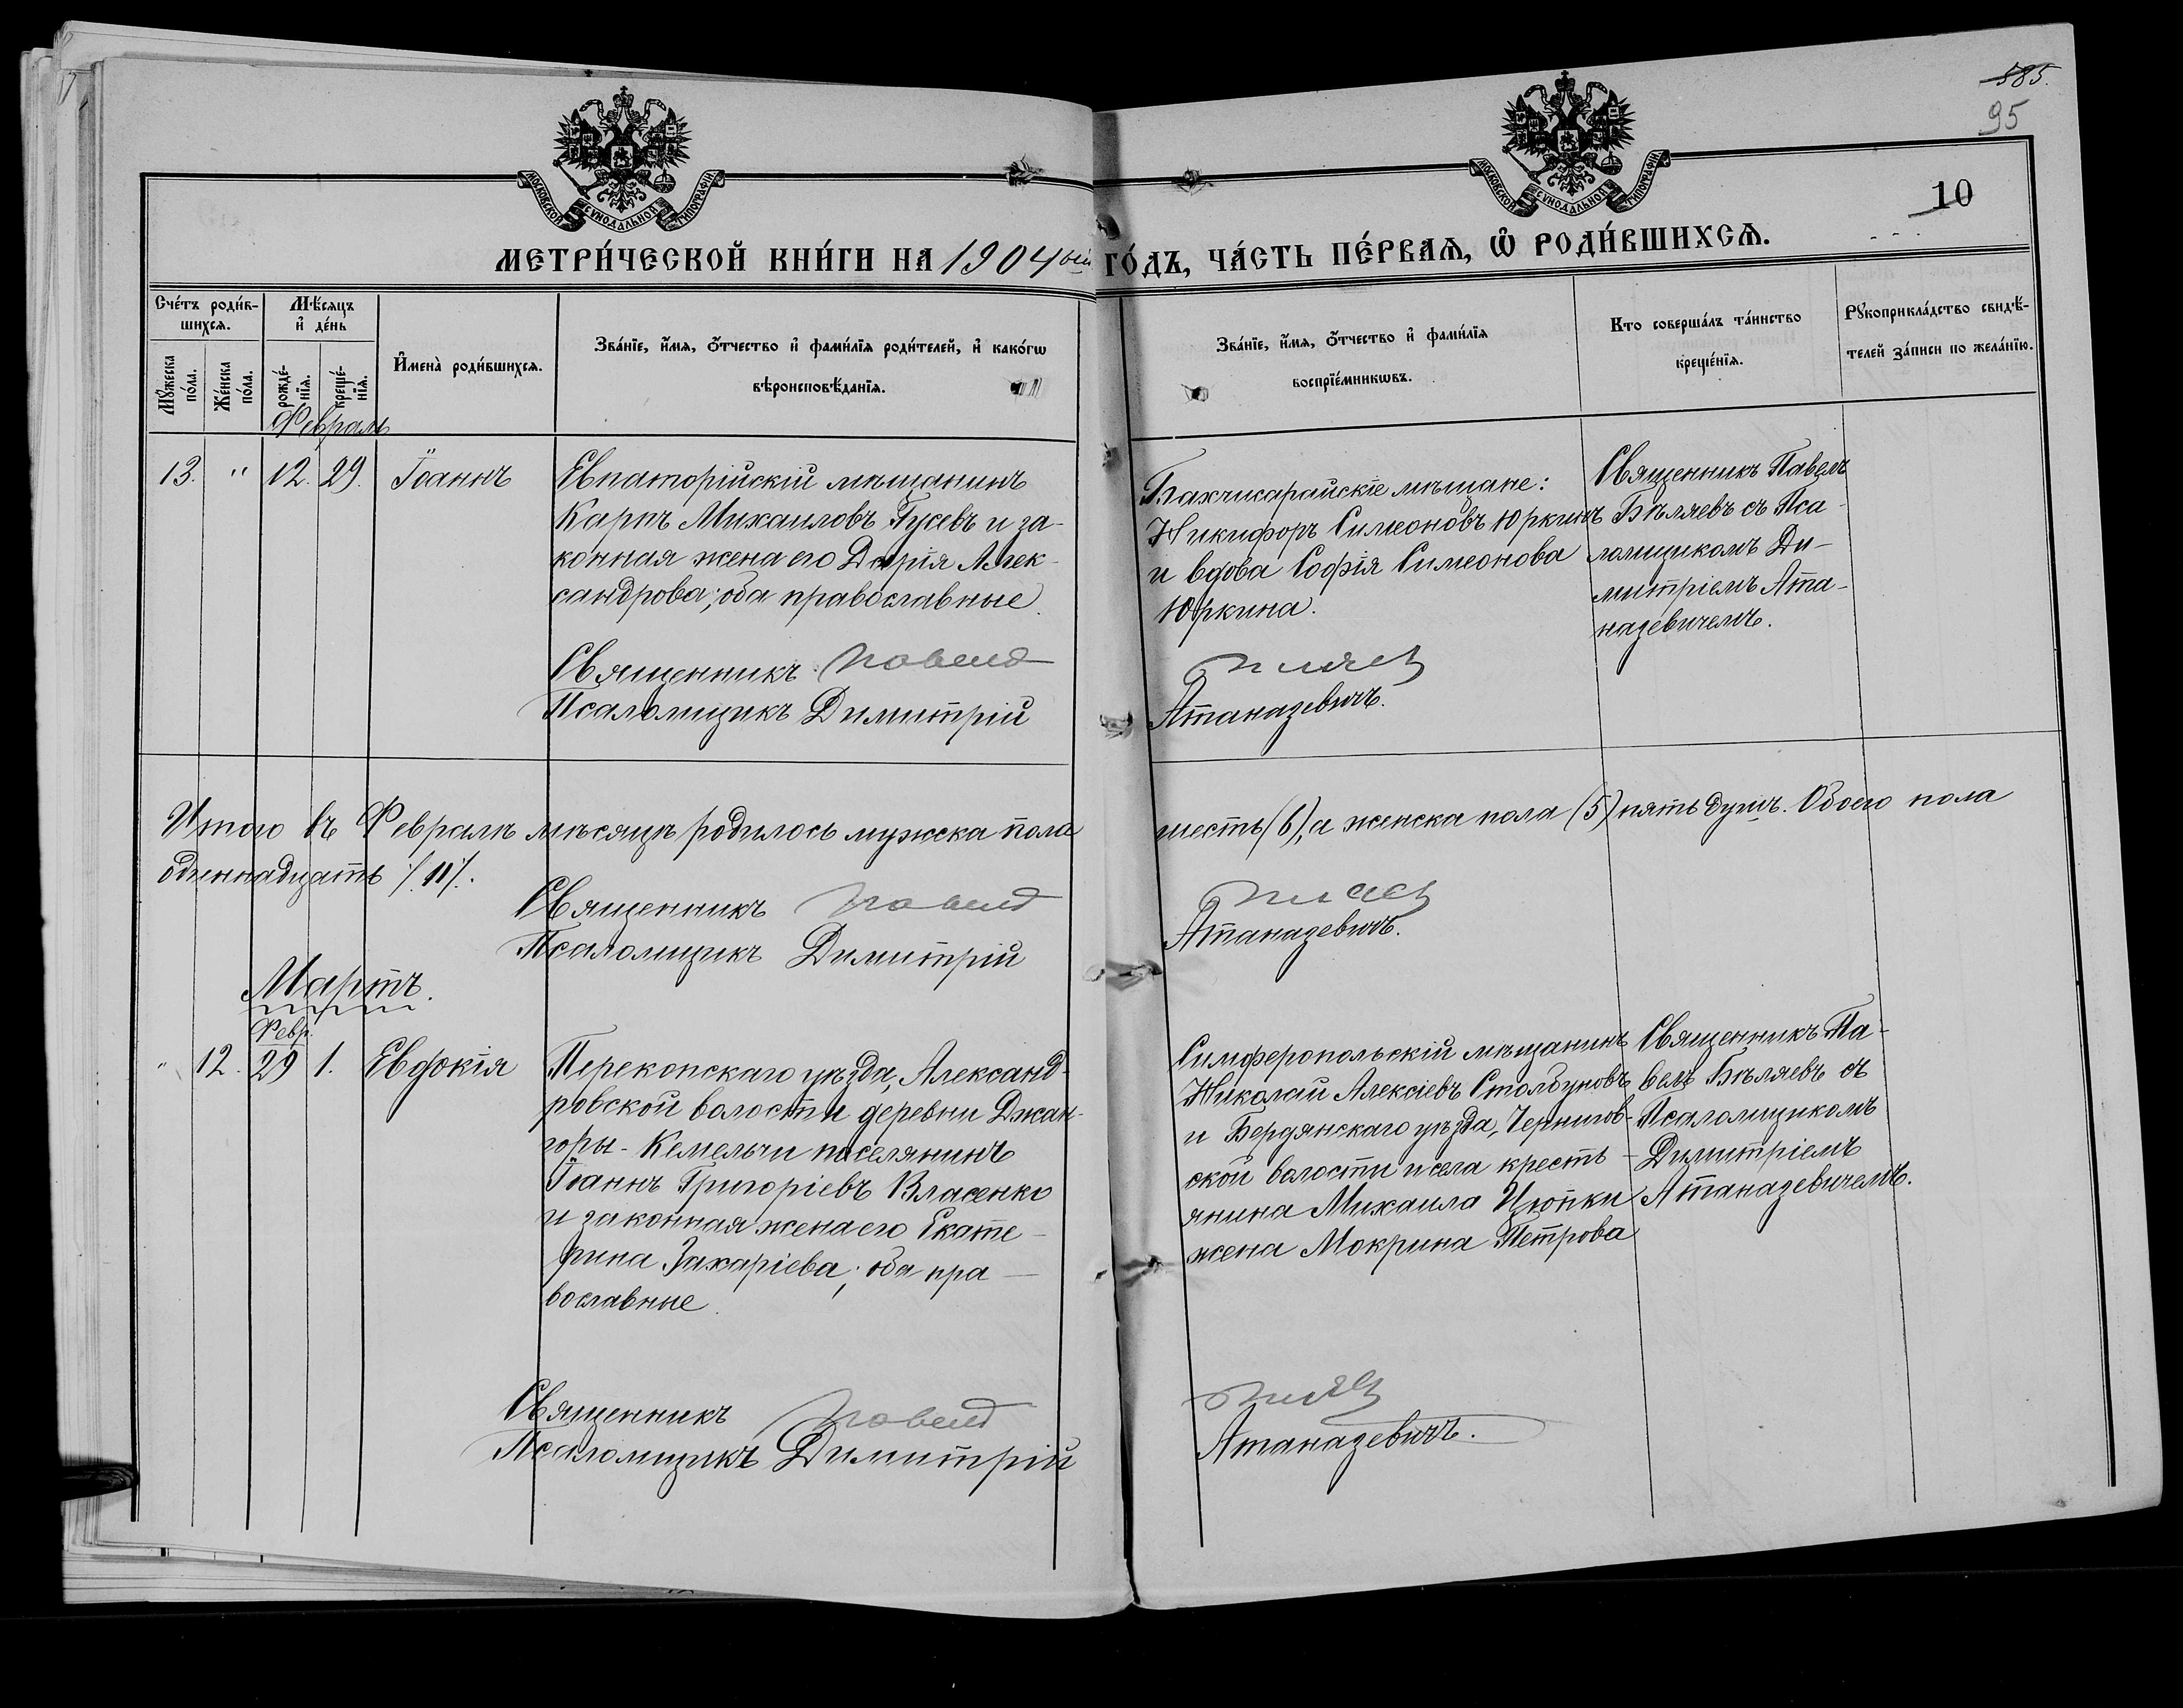 585.
95
10
МОСКОВСКОЙ СѴНОДАЛЬНОЙ ТИПОГРАФІИ
МОСКОВСКОЙ СѴНОДАЛЬНОЙ ТИПОГРАФІИ
МЕТРИ́ЧЕСКОЙ КНИ́ГИ НА 1904ый ГО́ДЪ, ЧА́СТЬ ПЕ́РВАѦ, Ѿ РОДИ́ВШИХСѦ.
Счéтъ роди́в-
шихсѧ.
Мꙋ́жеска
по́ла.
Же́нска
по́ла.
Мѣ́сѧцъ
и҆ де́нь
рожде́-
нїѧ.
креще́-
нїѧ.
И҆мена̀ роди́вшихсѧ.
Зва́нїе, и҆́мѧ, ѻ҆́тчество и҆ фами́лїѧ роди́телей, и҆ како́гѡ
вѣроисповѣ́данїѧ.
Зва́нїе, и҆́мѧ, ѻ҆́тчество и҆ фами́лїѧ
воспрїе́мникѡвъ.
Кто соверша́лъ та́инство
креще́нїѧ.
Рꙋкоприкла́дство свидѣ́-
телей за́писи по жела́нїю.
Февраль
13. " 12. 29. Іоаннъ
Евпаторійскій мѣщанинъ
Карпъ Михаиловъ Гусевъ и за-
конная жена его Дарія Алек-
сандрова; оба православные.
Бахчисарайскіе мѣщане:
Никифоръ Симеоновъ Юркинъ
и вдова Софія Симеонова
Юркина.
Священникъ Павелъ
Бѣляевъ съ Пса-
ломщикомъ Ди-
митріемъ Ата-
назевичемъ.
Священникъ Павелъ Бѣляевъ
Псаломщикъ Димитрій Атаназевичъ.
Итого въ Февралѣ мѣсяцѣ родилось мужска пола шесть (6), а женска пола (5) пять душъ. Обоего пола
одиннадцать /.11/.
Священникъ Павелъ Бѣляевъ
Псаломщикъ Димитрій Атаназевичъ.
Мартъ.
Февр.
" 12. 29 1. Евдокія
Перекопскаго уѣзда, Александ-
ровской волости деревни Джан-
горы-Кемельчи поселянинъ
Іоаннъ Григоріевъ Власенко
и законная жена его Екате-
рина Захаріева; оба пра-
вославные.
Симферопольскій мѣщанинъ
Николай Алексіевъ Столбуновъ
и Бердянскаго уѣзда, Чернигов-
ской волости и села кресть-
янина Михаила Цюпки
жена Мокрина Петрова
Священникъ Па-
велъ Бѣляевъ съ
Псаломщикомъ
Димитріемъ
Атаназевичемъ.
Священникъ Павелъ Бѣляевъ
Псаломщикъ Димитрій Атаназевичъ.